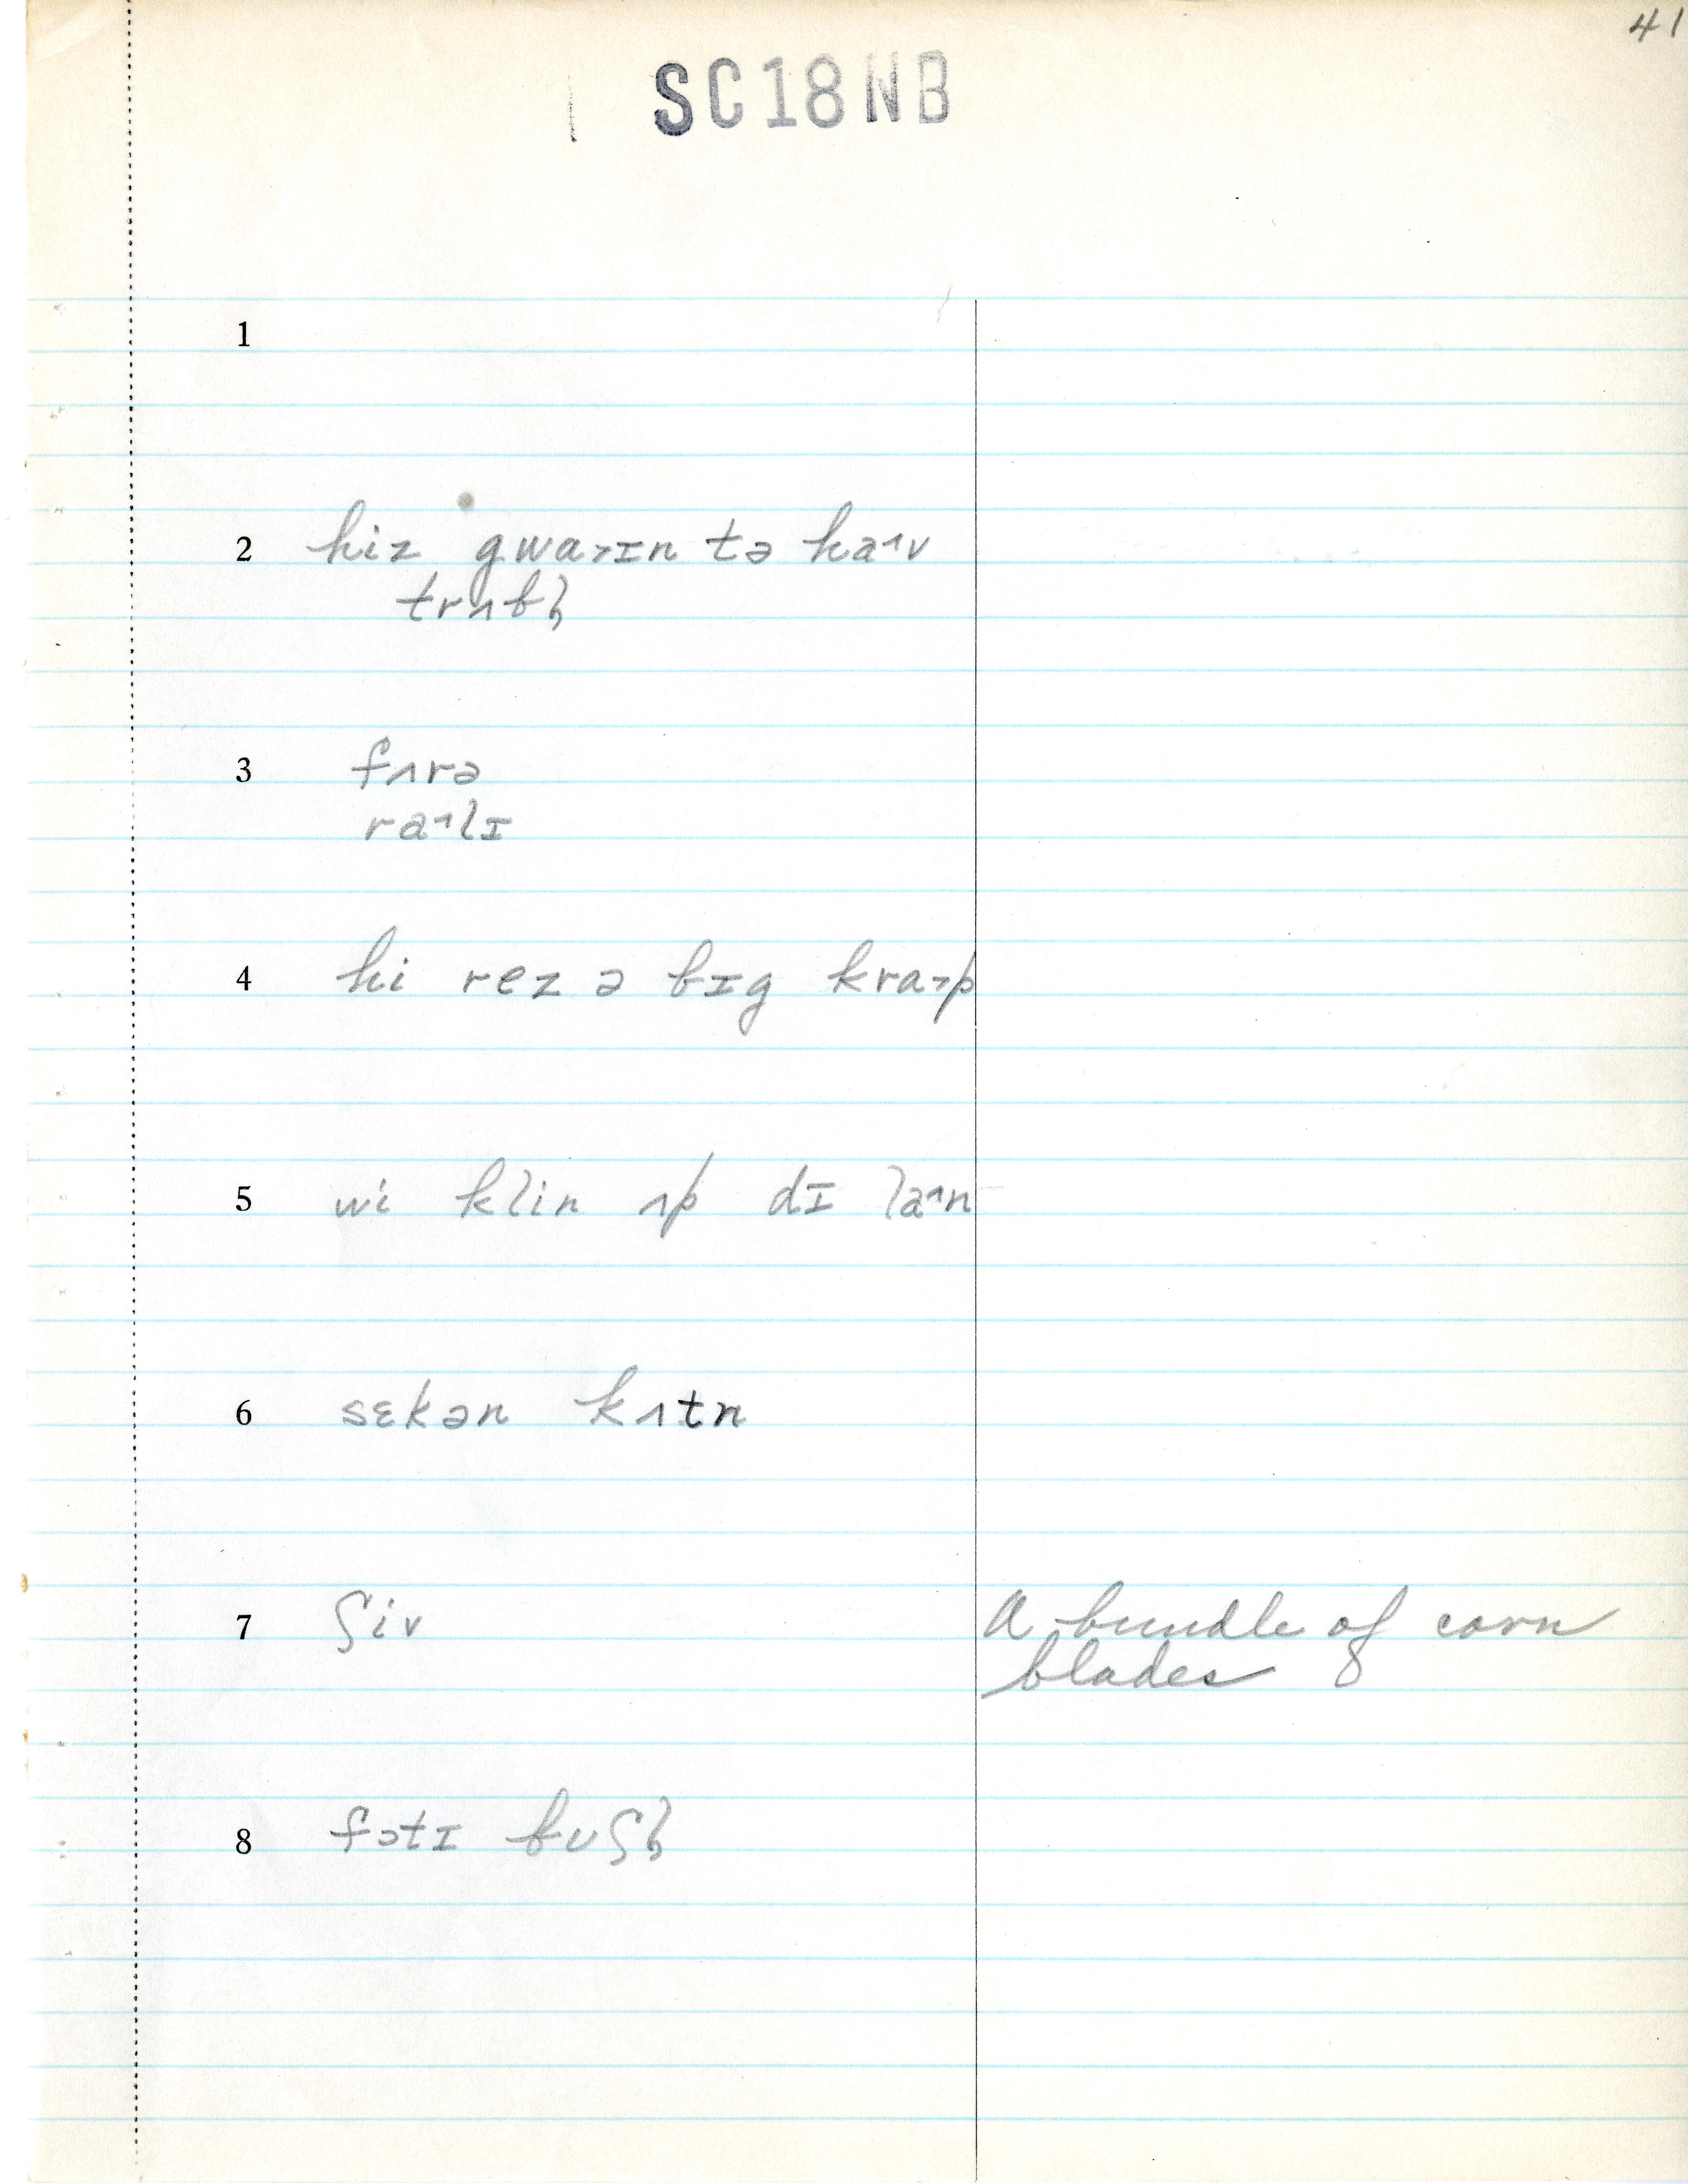 41
SC18NB
1
2 hiz gwa˃ɪn tə ha˄v
trʌbl̩
3 fʌrə
ra˄lɪ
4 hi rez ə bɪg kra˃p
5 wi klin ʌp dɪ la˄n
6 sɛkən kʌtn
7 ʃiv A bundle of corn
blades
8 fɔtɪ buʃl̩